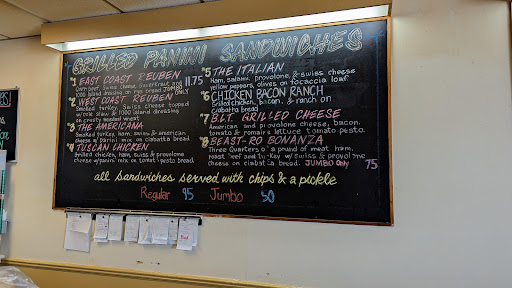 GRILLED PANINI SANDWICHES
#1 EAST COAST REUBEN
Corn beef, Swiss cheese, Sauerkraut
1000 island dressing on rye bread JUMBO ONLY 11.75
#2 WEST COAST REUBEN
Smoked turkey, Swiss cheese topped
w/cole slaw & 1000 island dressing
on crusty seeded wheat
#3 THE AMERICANA
Smoked turkey, ham, swiss & american
cheese w/parini mix on tomato pesto bread
#4 TUSCAN CHICKEN
Grilled chicken, ham, swiss & provolone
cheese w/parini mix on tomato pesto bread
#5 THE ITALIAN
Ham, salami, provolone, & swiss cheese
yellow peppers, olives on focaccia loaf
#6 CHICKEN BACON RANCH
Grilled chicken, bacon, & ranch on
ciabatta bread
#7 B.L.T. GRILLED CHEESE
American and provolone cheese, bacon,
tomato & romaine lettuce tomato pesto
#8 BEAST-RO BONANZA
Three Quarters of a pound of meat ham,
roast beef and turkey w/ swiss & provolone
cheese on ciabatta bread JUMBO ONLY 75
all sandwiches served with chips & a pickle
Regular 95 Jumbo 50